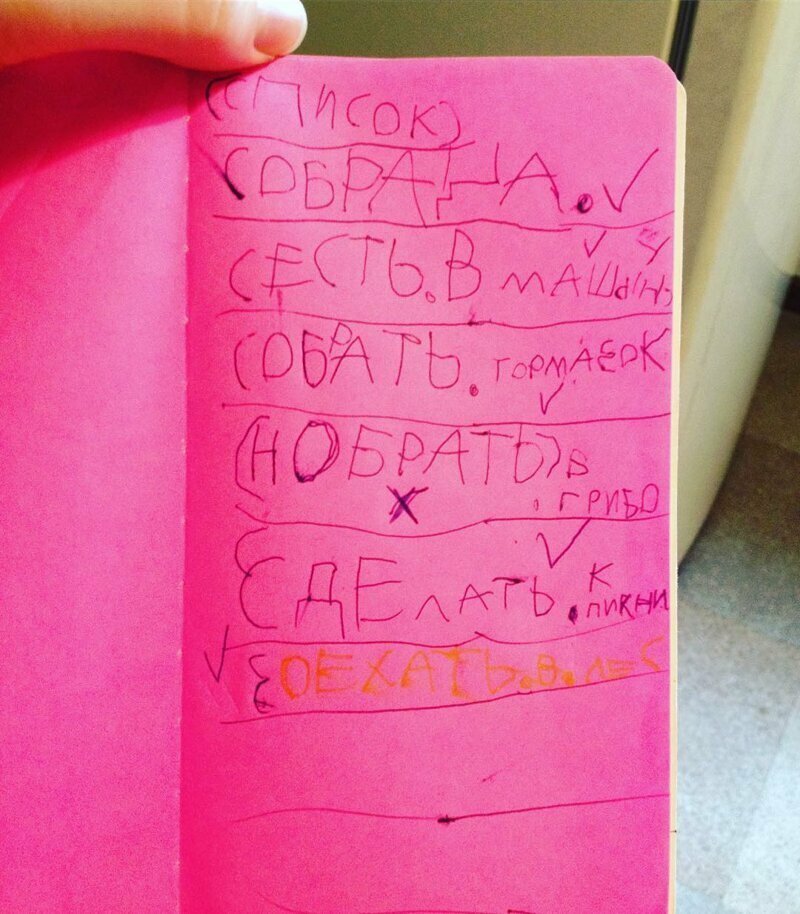 (СПИСОК)
СОБРАЦА. ✓
СЕСТЬ.В МАШЫНУ ✓
СОБРАТЬ. ТОРМАЗОК ✓
(НОБРАТЬ) В
. ГРИБО
СДЕЛАТЬ. К
ПИКНИ
ОЕХАТЬ.В.ЛЕС